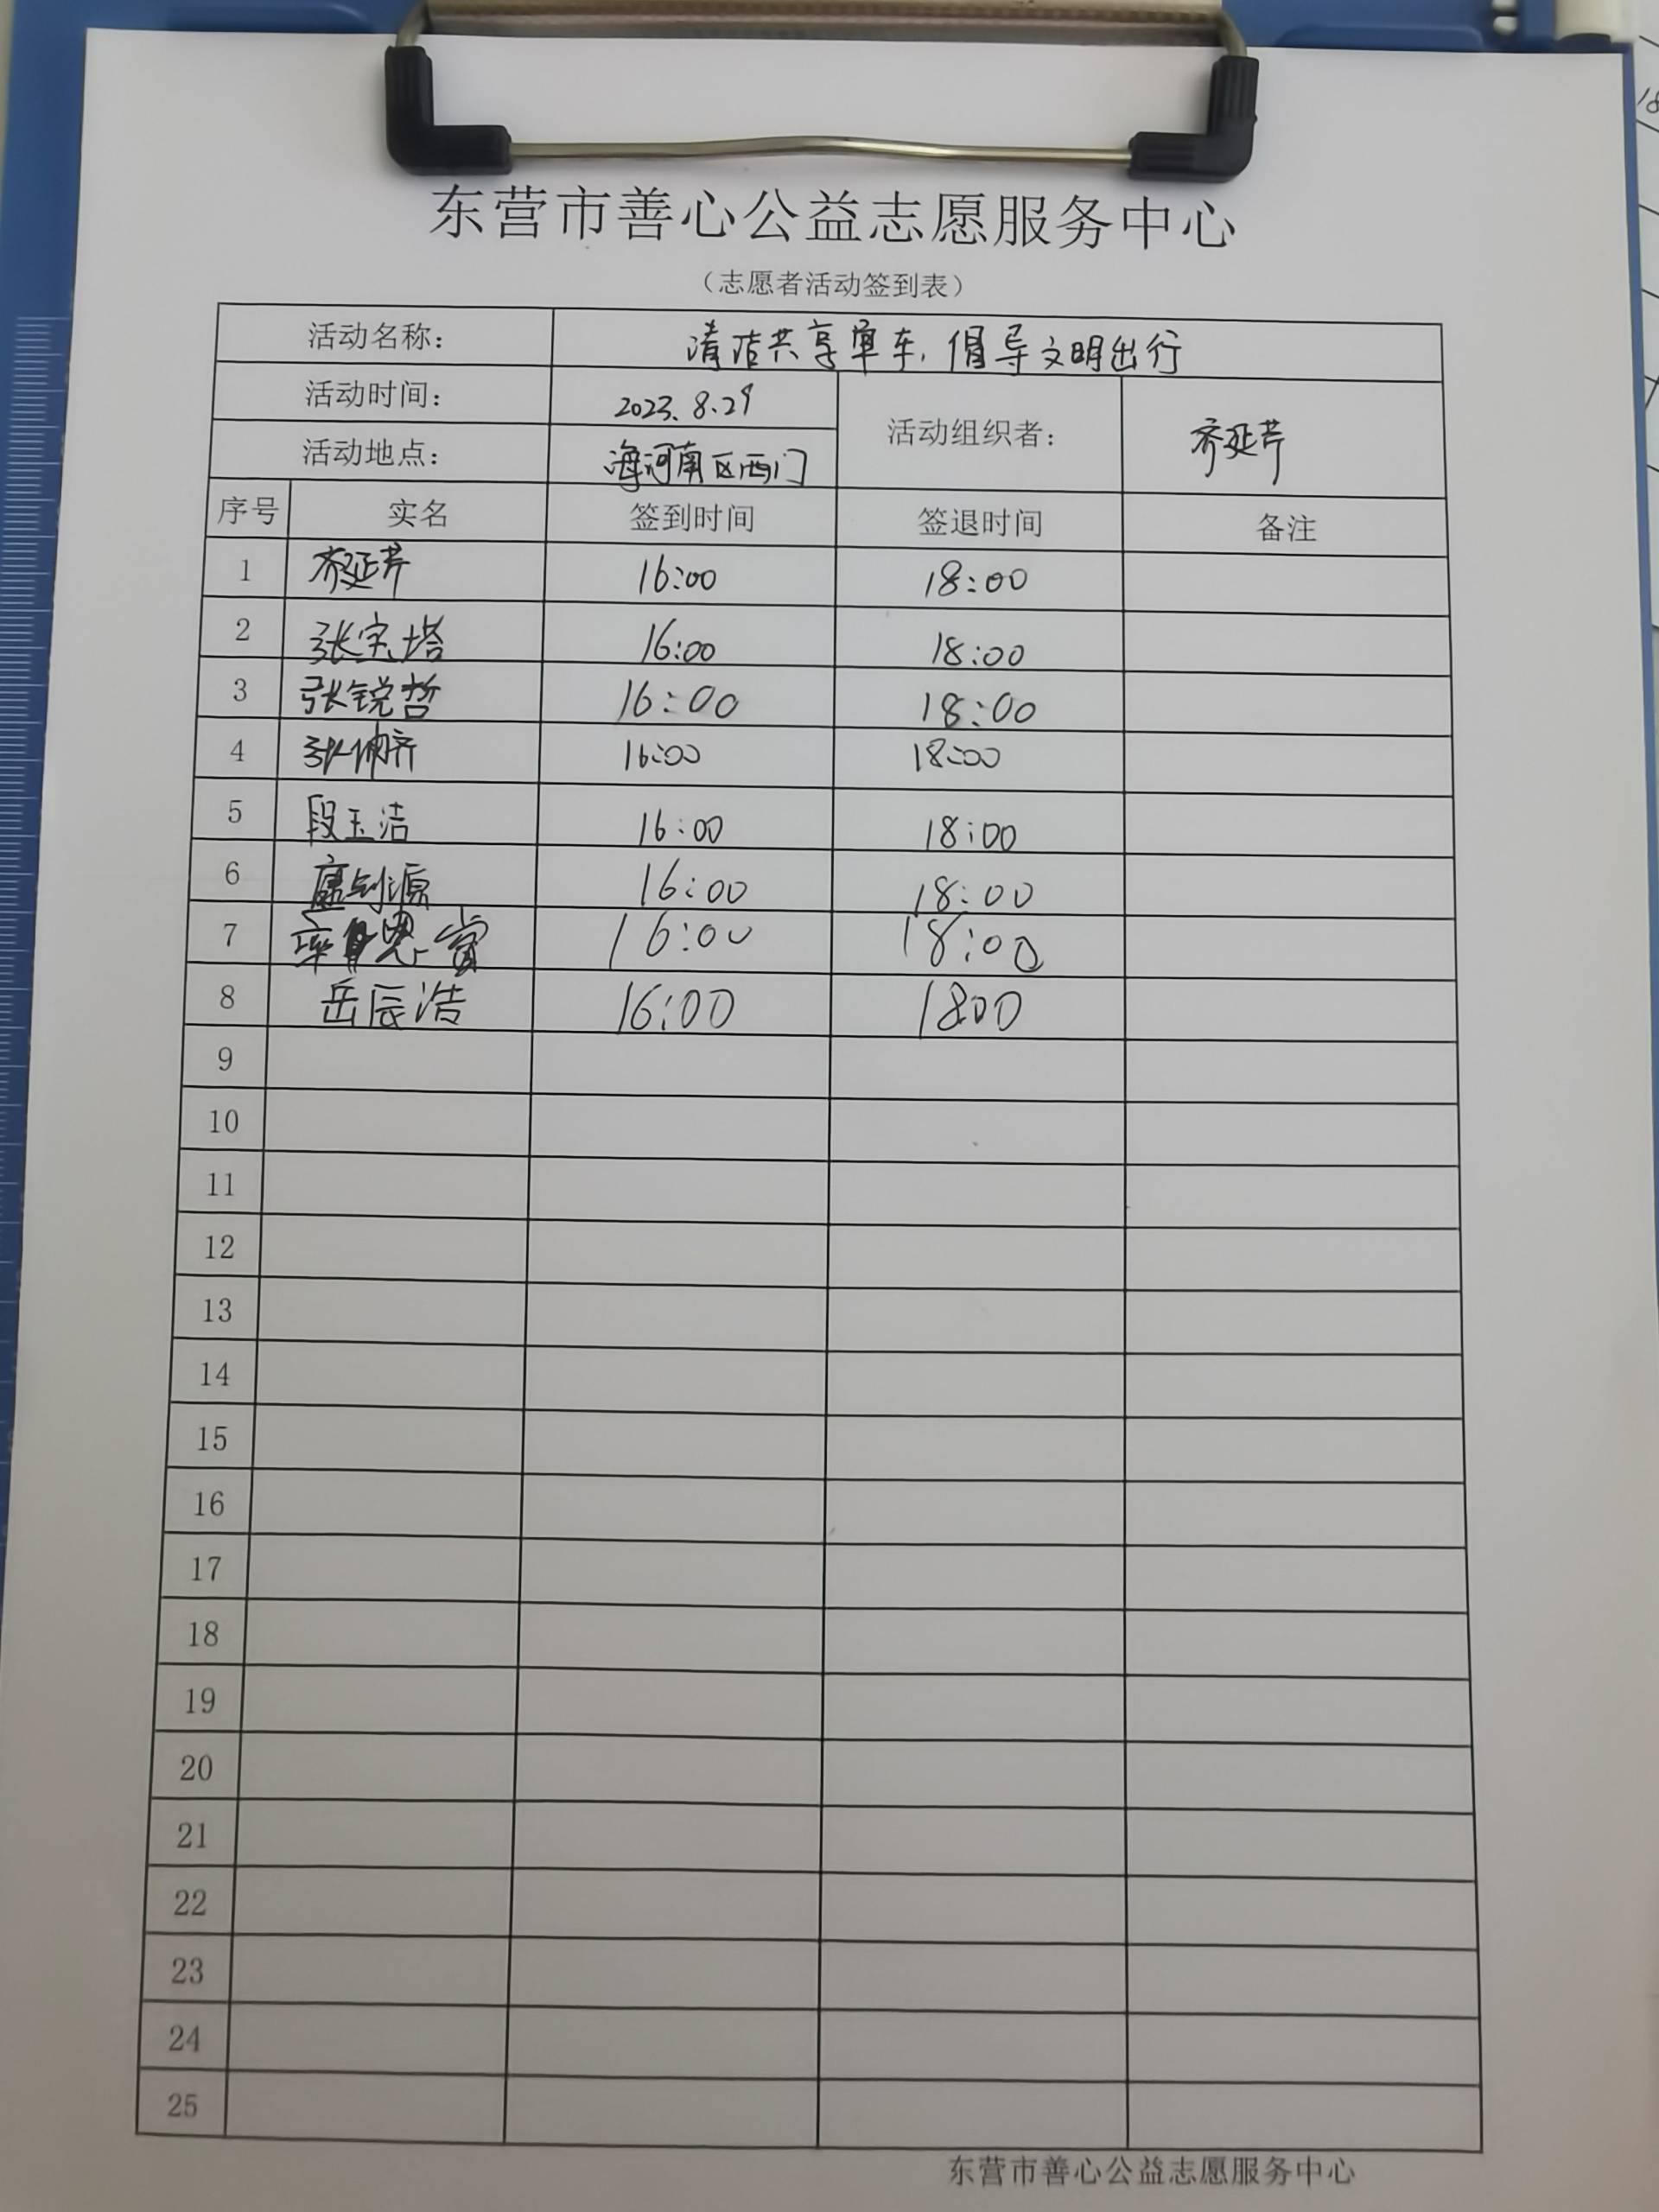 东营市善心公益志愿服务中心
（志愿者活动签到表）
活动名称： 清洁共享单车，倡导文明出行
活动时间： 2023.8.29
活动组织者： 齐延芹
活动地点： 海河南区西门
序号 实名 签到时间 签退时间 备注
1 齐延芹 16:00 18:00
2 张宝塔 16:00 18:00
3 张锐哲 16:00 18:00
4 16:00 18:00
5 段玉洁 16:00 18:00
6 16:00 18:00
7 16:00 18:00
8 岳辰浩 16:00 1800
9
10
11
12
13
14
15
16
17
18
19
20
21
22
23
24
25
东营市善心公益志愿服务中心